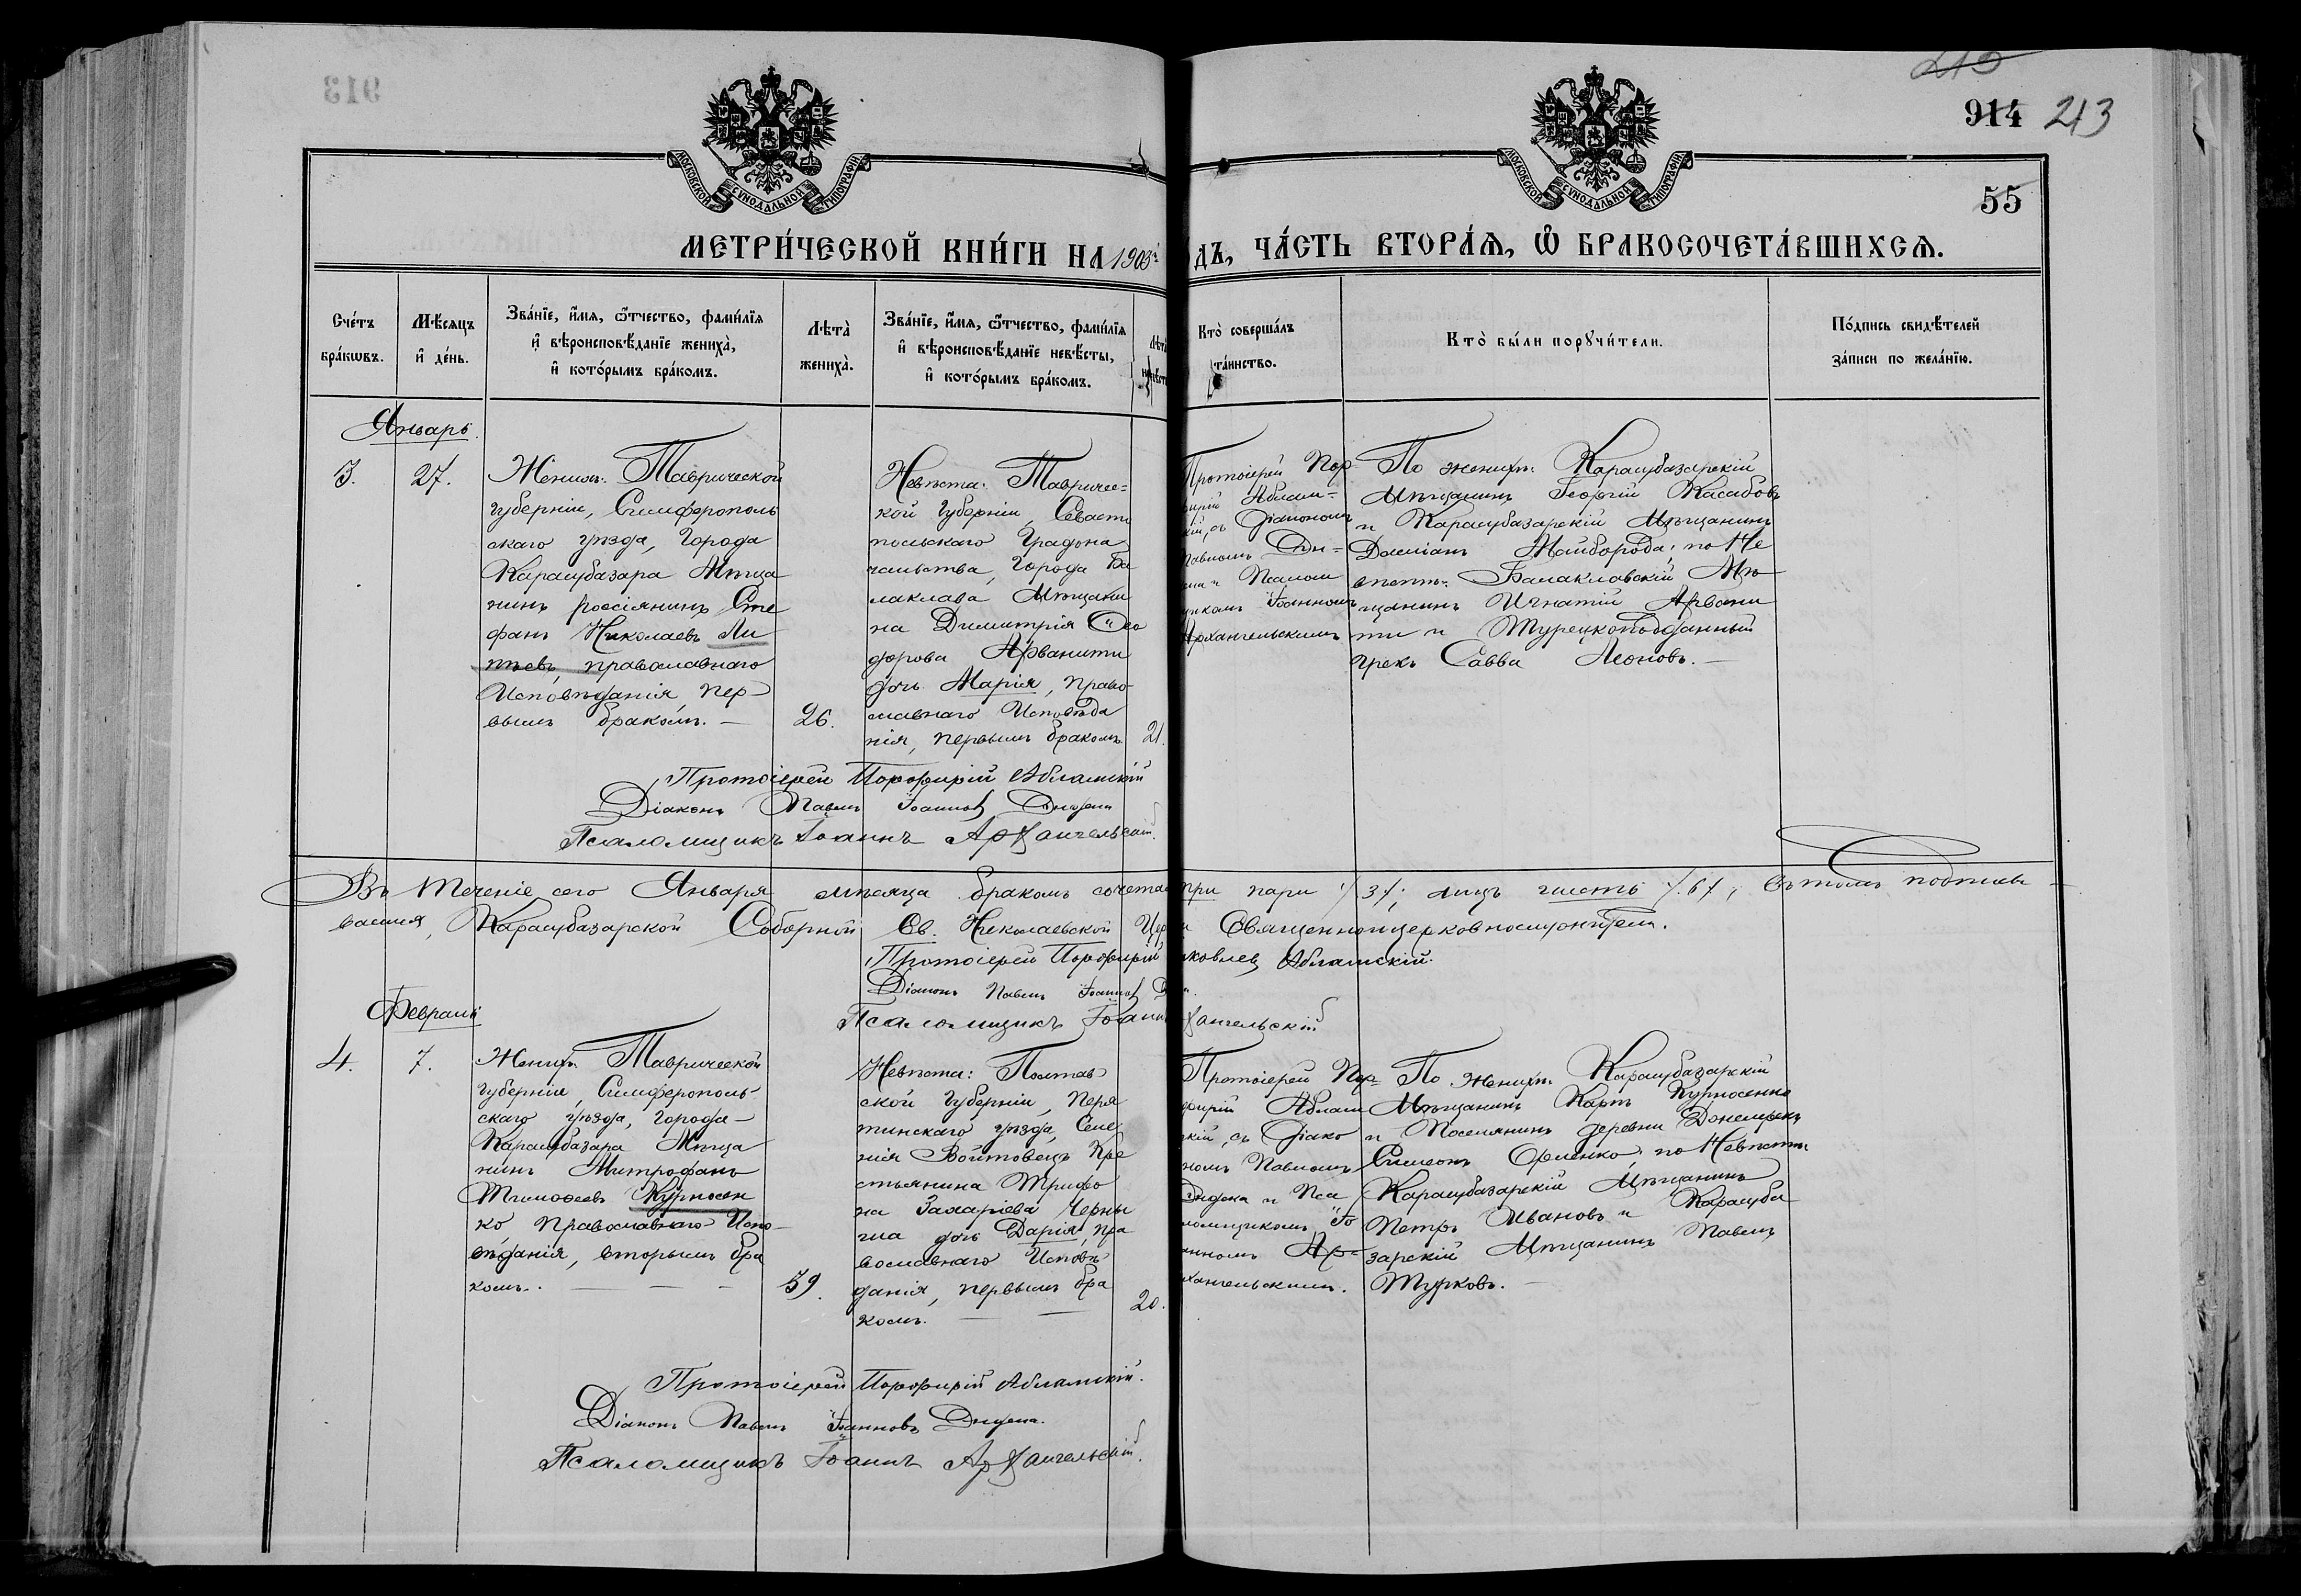 213
914 213
55
МОСКОВСКОЙ СѴНОДАЛЬНОЙ ТИПОГРАФІИ
МОСКОВСКОЙ СѴНОДАЛЬНОЙ ТИПОГРАФІИ
МЕТРИ́ЧЕСКОЙ КНИ́ГИ НА 1903й
ДЪ, ЧА́СТЬ ВТОРА́Ѧ, Ѡ БРАКОСОЧЕТА́ВШИХСѦ.
Сче́тъ
бра́кѡвъ.
Мѣ́сяцъ
и де́нь.
Зва́нїе, и́мя, ѻ́тчество, фами́лїя
и вѣроисповѣ́данїе жениха̀,
и кото́рымъ бра́комъ.
Лѣта̀
жениха̀.
Зва́нїе, и́мя, ѻ́тчество, фами́лїя
и вѣроисповѣ́данїе невѣ́сты,
и кото́рымъ бра́комъ.
Кто̀ соверша́лъ
та́инство.
Кто̀ бы́ли порꙋчи́тели.
По́дпись свидѣ́телей
за́писи по жела́нїю.
Январь.
3.
27.
Женихъ: Таврической
Губерніи, Симферополь
скаго уѣзда, Города
Карасубазара Мѣща
нинъ россіянинъ Сте
фанъ Николаевъ Ли
пѣевъ, православнаго
Исповѣданія пер
вымъ бракомъ. —
26.
Невѣста: Тавричес=
кой Губерніи, Севасто
польскаго Градона
чальства, Города Ба
лаклава Мѣщани
на Димитрія Ѳео
дорова Арванити
дочь Марія, право-
славнаго Исповѣда
нія, первымъ бракомъ
21.
Протоіерей Пор
фирій Аблам=
скій, съ Діакономъ
Павломъ Ди=
Псалом
щикомъ Іоанномъ
Архангельскимъ
По женихѣ: Карасубазарскій
Мѣщанинъ Георгій Касабовъ
и Карасубазарскій Мѣщанинъ
Даміанъ Майборода; по Не
вѣстѣ: Балаклавскій Мѣ
щанинъ Игнатій Арвани
ти и Турецкоподданный
грекъ Савва Леоновъ. —
Протоіерей Порфирій Абламскій
Діаконъ Павелъ Іоанновъ
Псаломщикъ Іоаннъ Архангельскій.
Въ теченіе сего Января мѣсяца бракомъ сочета три пары /3/; лицъ шесть /6/, въ томъ подписы
ваемся, Карасубазарской Соборной Св. Николаевской Цер Священноцерковнослужители.
Протоіерей Порфирій Яковлевъ Абламскій.
Діаконъ Павелъ Іоанновъ
Псаломщикъ Іоаннъ Архангельскій
Февраль
4.
7.
Женихъ Таврической
Губерніи, Симферополь-
скаго уѣзда, Города-
Карасубазара Мѣща
нинъ Митрофанъ
Тимоѳеевъ Курносен
ко, православнаго Испо-
вѣданія, вторымъ бра
комъ. — — —
39.
Невѣста: Полтав
ской Губерніи, Перя
тинскаго уѣзда, Селе
нія Войтовецъ Кре
стьянина Трифо
на Захаріева Черны
ша дочь Дарія, пра
вославнаго Исповѣ
данія, первымъ бра
комъ. — —
20.
Протоіерей Пор=
фирій Аблам
скій, съ Діако
номъ Павломъ
и Пса
ломщикомъ Іо
анномъ Ар=
хангельскимъ.
По женихѣ: Карасубазарскій
Мѣщанинъ Карпъ Курносенко
и Поселянинъ деревни
Симеонъ; по Невѣстѣ
Карасубазарскій Мѣщанинъ
Петръ Ивановъ и Карасуба
зарскій Мѣщанинъ Павелъ
Турковъ. —
Протоіерей Порфирій Абламскій.
Діаконъ Павелъ Іоанновъ
Псаломщикъ Іоаннъ Архангельскій.